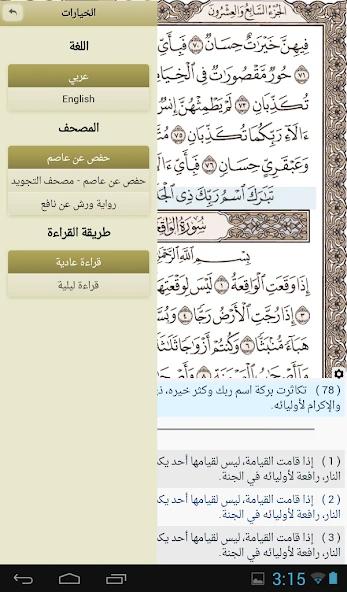 الخيارات
اللغة
عربي
English
المصحف
حفص عن عاصم
حفص عن عاصم - مصحف التجويد
رواية ورش عن نافع
طريقة القراءة
قراءة عادية
قراءة ليلية
الجزء السابع والعشرون
فيهن خيرات حسان ٧٠ فبأي
٧١ حور مقصورات في الخيام
تكذبان ٧٣ لم يطمثهن إنس
ءالاء ربكما تكذبان ٧٥
وعبقري حسان ٧٦ فبأي ءالا
تبارك اسم ربك ذي الجلا
سورة الواقعة
بسم الله الرحمن
إذا وقعت الواقعة ١ ليس لوقعتها
٣ إذا رجت الأرض رجا ٤ و
هباء منبثا ٦ وكنتم أزواجا ثلاثة
( 78 ) تكاثرت بركة اسم ربك وكثر خيره،
والإكرام لأوليائه.
( 1 ) إذا قامت القيامة، ليس لقيامها أحد
النار، رافعة لأوليائه في الجنة.
( 2 ) إذا قامت القيامة، ليس لقيامها أحد
النار، رافعة لأوليائه في الجنة.
( 3 ) إذا قامت القيامة، ليس لقيامها أحد
النار، رافعة لأوليائه في الجنة.
3:15